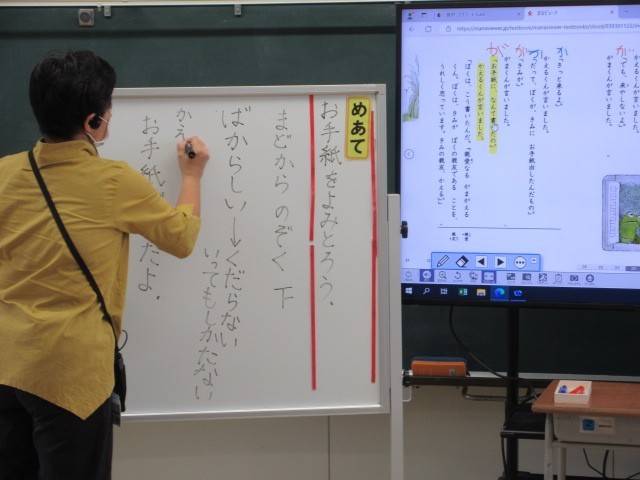 めあて
お手紙をよみとろう。
まどからのぞく 下
ばからしい→くだらない
いってもしかたない
かえ
お手紙
たよ。
「でも、来やしないよ。」
がまくんが言いました。
「きっと来るよ。」
かえるくんが言いました。
「だって、ぼくが、きみに お手紙出したんだもの。」
「きみが。」
がまくんが言いました。
「お手紙に、なんて書いたの。」
かえるくんが言いました。
「ぼくは、こう書いたんだ。『親愛なる がまがえる
くん。ぼくは、きみが ぼくの親友である ことを、
うれしく思っています。きみの親友、かえる。』」